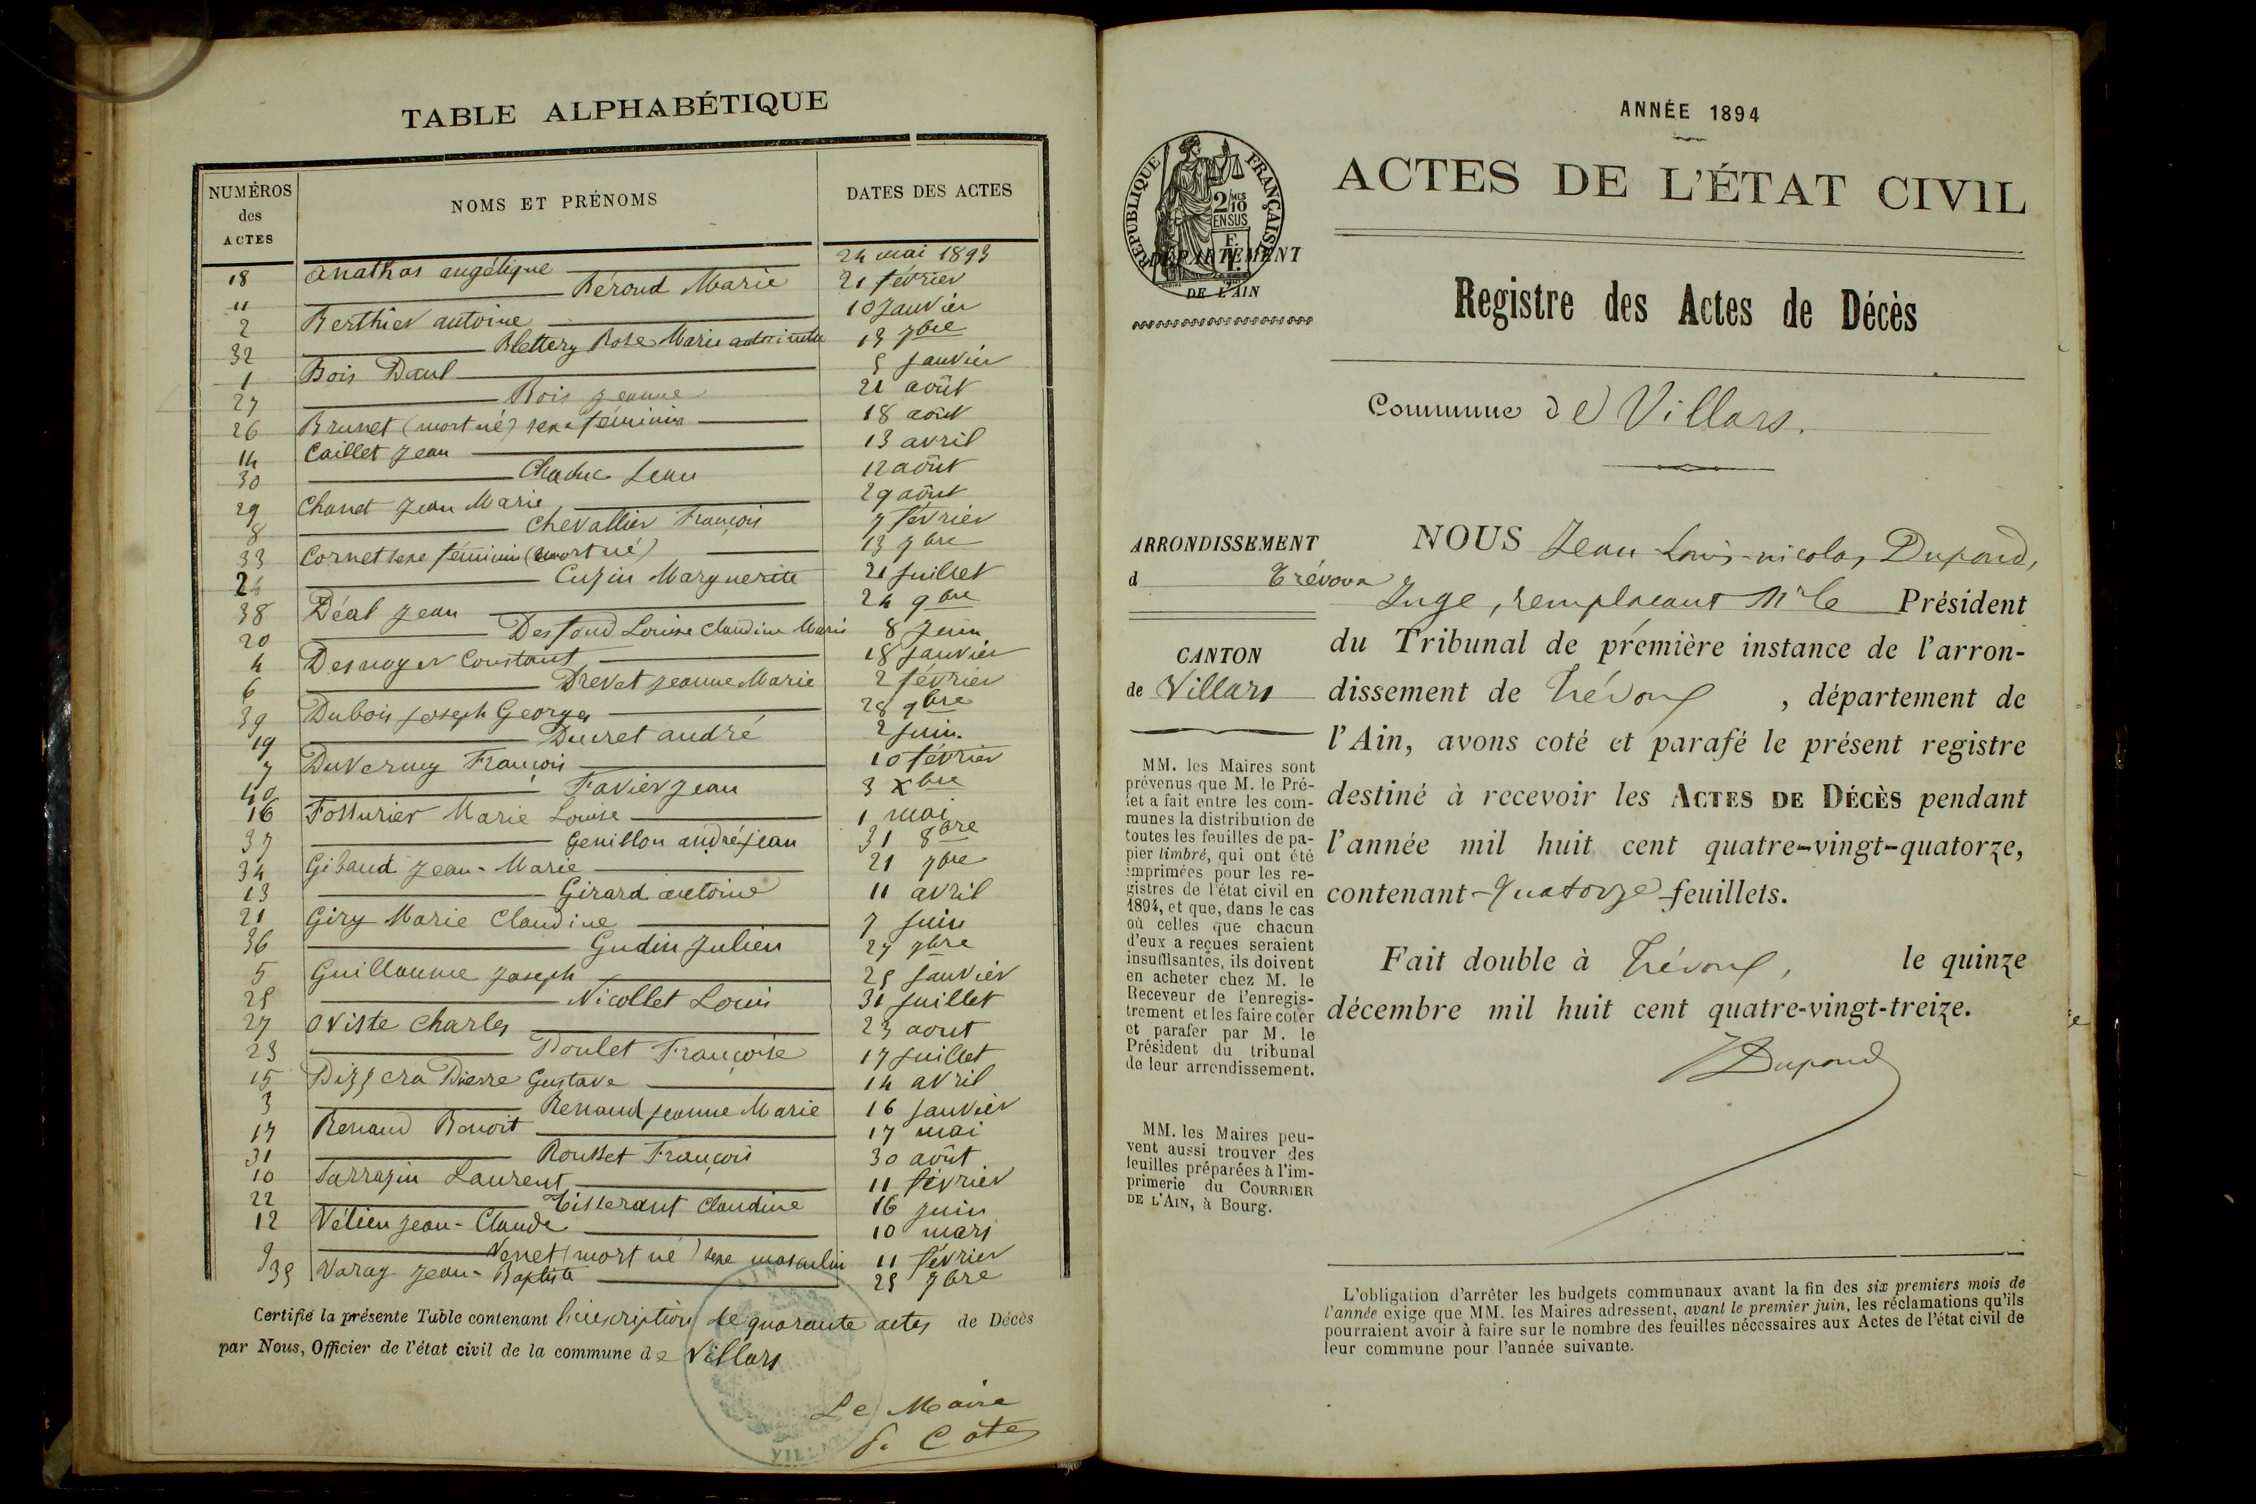 TABLE ALPHABÉTIQUE
NUMÉROS des ACTES
NOMS ET PRÉNOMS
DATES DES ACTES
18 Anathos angélique 24 mai 1893
11 Béroud Marie 21 février
2 Berthier antoine 10 Janvier
32 Blettery Rose Marie 13 7bre
1 Bois Paul 5 Janvier
27 Bois Jeanne 21 août
26 Brunet (mort né) sexe féminin 18 août
14 Caillet Jean 13 avril
30 Chaduc Jean 12 août
29 Chanet Jean Marie 29 août
8 Chevallier François 7 février
33 Cornet sexe féminin (mort né) 13 7bre
24 Cuzin Marguerite 21 Juillet
38 Déal Jean 24 9bre
20 Desfond Louise Claudine Marie 8 Juin
4 Desnoyer Constant 18 Janvier
6 Drevet Jeanne Marie 2 février
39 Dubois Joseph Georges 28 9bre
19 Ducret andré 2 Juin.
7 Duvernay François 10 février
40 Favier Jean 3 Xbre
16 Fossurier Marie Louise 1 mai
37 Genillon andré Jean 31 8bre
34 Gibaud Jean-Marie 21 7bre
13 Girard antoine 11 avril
21 Giry Marie Claudine 7 Juin
36 Gudin Julien 27 7bre
5 Guillaume Joseph 25 Janvier
25 Nicollet Louis 31 Juillet
27 Oviste Charles 23 aout
23 Poulet Françoise 17 Juillet
15 Pizzera Pierre Gustave 14 avril
3 Renaud Jeanne Marie 16 Janvier
17 Renaud Benoit 17 mai
31 Rousset François 30 août
10 Sarrazin Laurent 11 février
22 Tisserant Claudine 16 Juin
12 Vélien Jean-Claude 10 mars
9 Venet (mort né) sexe masculin 11 février
35 Varay Jean-Baptiste 25 7bre
Certifié la présente Table contenant l'inscription de quarante actes de Décès
par Nous, Officier de l'état civil de la commune de Villars
Le Maire
Côte
ANNÉE 1894
RÉPUBLIQUE FRANÇAISE
2/10 MES
EN SUS
DÉPARTEMENT
DE L'AIN
ACTES DE L'ÉTAT CIVIL
Registre des Actes de Décès
Commune de Villars.
ARRONDISSEMENT
d Trévoux
CANTON
de Villars
MM. les Maires sont
prévenus que M. le Pré-
fet a fait entre les com-
munes la distribution de
toutes les feuilles de pa-
pier timbré, qui ont été
imprimées pour les re-
gistres de l'état civil en
1894, et que, dans le cas
où celles que chacun
d'eux a reçues seraient
insuffisantes, ils doivent
en acheter chez M. le
Receveur de l'enregis-
trement et les faire coter
et parafer par M. le
Président du tribunal
de leur arrondissement.
MM. les Maires peu-
vent aussi trouver des
feuilles préparées à l'im-
primerie du COURRIER
DE L'AIN, à Bourg.
NOUS Jean Louis-nicolas Dupond,
Juge, remplacant Mr le Président
du Tribunal de première instance de l'arron-
dissement de Trévoux, département de
l'Ain, avons coté et parafé le présent registre
destiné à recevoir les ACTES DE DÉCÈS pendant
l'année mil huit cent quatre-vingt-quatorze,
contenant quatorze feuillets.
Fait double à Trévoux, le quinze
décembre mil huit cent quatre-vingt-treize.
Dupond
L'obligation d'arrêter les budgets communaux avant la fin des six premiers mois de
l'année exige que MM. les Maires adressent, avant le premier juin, les réclamations qu'ils
pourraient avoir à faire sur le nombre des feuilles nécessaires aux Actes de l'état civil de
leur commune pour l'année suivante.